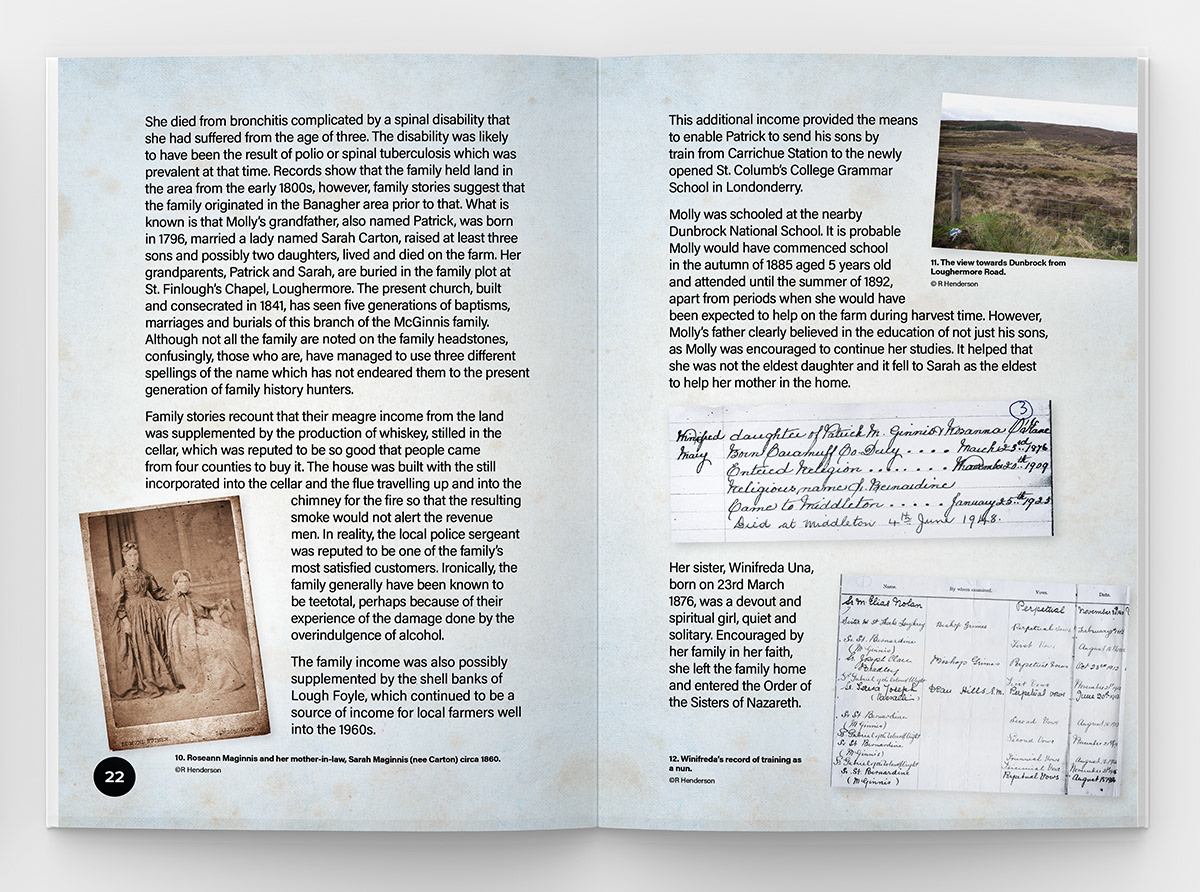 She died from bronchitis complicated by a spinal disability that
she had suffered from the age of three. The disability was likely
to have been the result of polio or spinal tuberculosis which was
prevalent at that time. Records show that the family held land in
the area from the early 1800s, however, family stories suggest that
the family originated in the Banagher area prior to that. What is
known is that Molly's grandfather, also named Patrick, was born
in 1796, married a lady named Sarah Carton, raised at least three
sons and possibly two daughters, lived and died on the farm. Her
grandparents, Patrick and Sarah, are buried in the family plot at
St. Finlough's Chapel, Loughermore. The present church, built
and consecrated in 1841, has seen five generations of baptisms,
marriages and burials of this branch of the McGinnis family.
Although not all the family are noted on the family headstones,
confusingly, those who are, have managed to use three different
spellings of the name which has not endeared them to the present
generation of family history hunters.
Family stories recount that their meagre income from the land
was supplemented by the production of whiskey, stilled in the
cellar, which was reputed to be so good that people came
from four counties to buy it. The house was built with the still
incorporated into the cellar and the flue travelling up and into the
chimney for the fire so that the resulting
smoke would not alert the revenue
men. In reality, the local police sergeant
was reputed to be one of the family's
most satisfied customers. Ironically, the
family generally have been known to
be teetotal, perhaps because of their
experience of the damage done by the
overindulgence of alcohol.
The family income was also possibly
supplemented by the shell banks of
Lough Foyle, which continued to be a
source of income for local farmers well
into the 1960s.
10. Roseann Maginnis and her mother-in-law, Sarah Maginnis (nee Carton) circa 1860.
©R Henderson
22
This additional income provided the means
to enable Patrick to send his sons by
train from Carrichue Station to the newly
opened St. Columb's College Grammar
School in Londonderry.
Molly was schooled at the nearby
Dunbrock National School. It is probable
Molly would have commenced school
in the autumn of 1885 aged 5 years old
and attended until the summer of 1892,
apart from periods when she would have
been expected to help on the farm during harvest time. However,
Molly's father clearly believed in the education of not just his sons,
as Molly was encouraged to continue her studies. It helped that
she was not the eldest daughter and it fell to Sarah as the eldest
to help her mother in the home.
11. The view towards Dunbrock from
Loughermore Road.
© R Henderson
3
Winifred daughter of Patrick M. Ginnis & Rosanna
Mary Born Co. Derry .... March 23rd 1876
Entered Religion ........ 20th 1909
Religious name Sr. Bernardine
Came to Middleton ..... January 25th 1925
Died at Middleton 4th June 1948.
Her sister, Winifreda Una,
born on 23rd March
1876, was a devout and
spiritual girl, quiet and
solitary. Encouraged by
her family in her faith,
she left the family home
and entered the Order of
the Sisters of Nazareth.
12. Winifreda's record of training as
a nun.
©R Henderson
Name. By whom examined. Vows. Date.
Sr M. Elias Nolan Perpetual
Bishop Grimes Perpetual Vows
Sr St. Bernardine First Vows
(McGinnis)
Sr Joseph Bishop Grimes Perpetual Vows
Bradley
First Vows
Joseph Dean Hills S.M. Perpetual Vows
Sr St. Bernardine Second Vows
(McGinnis)
Second Vows
Sr St. Bernardine
(McGinnis)
Sr St. Bernardine Perpetual Vows
(McGinnis)